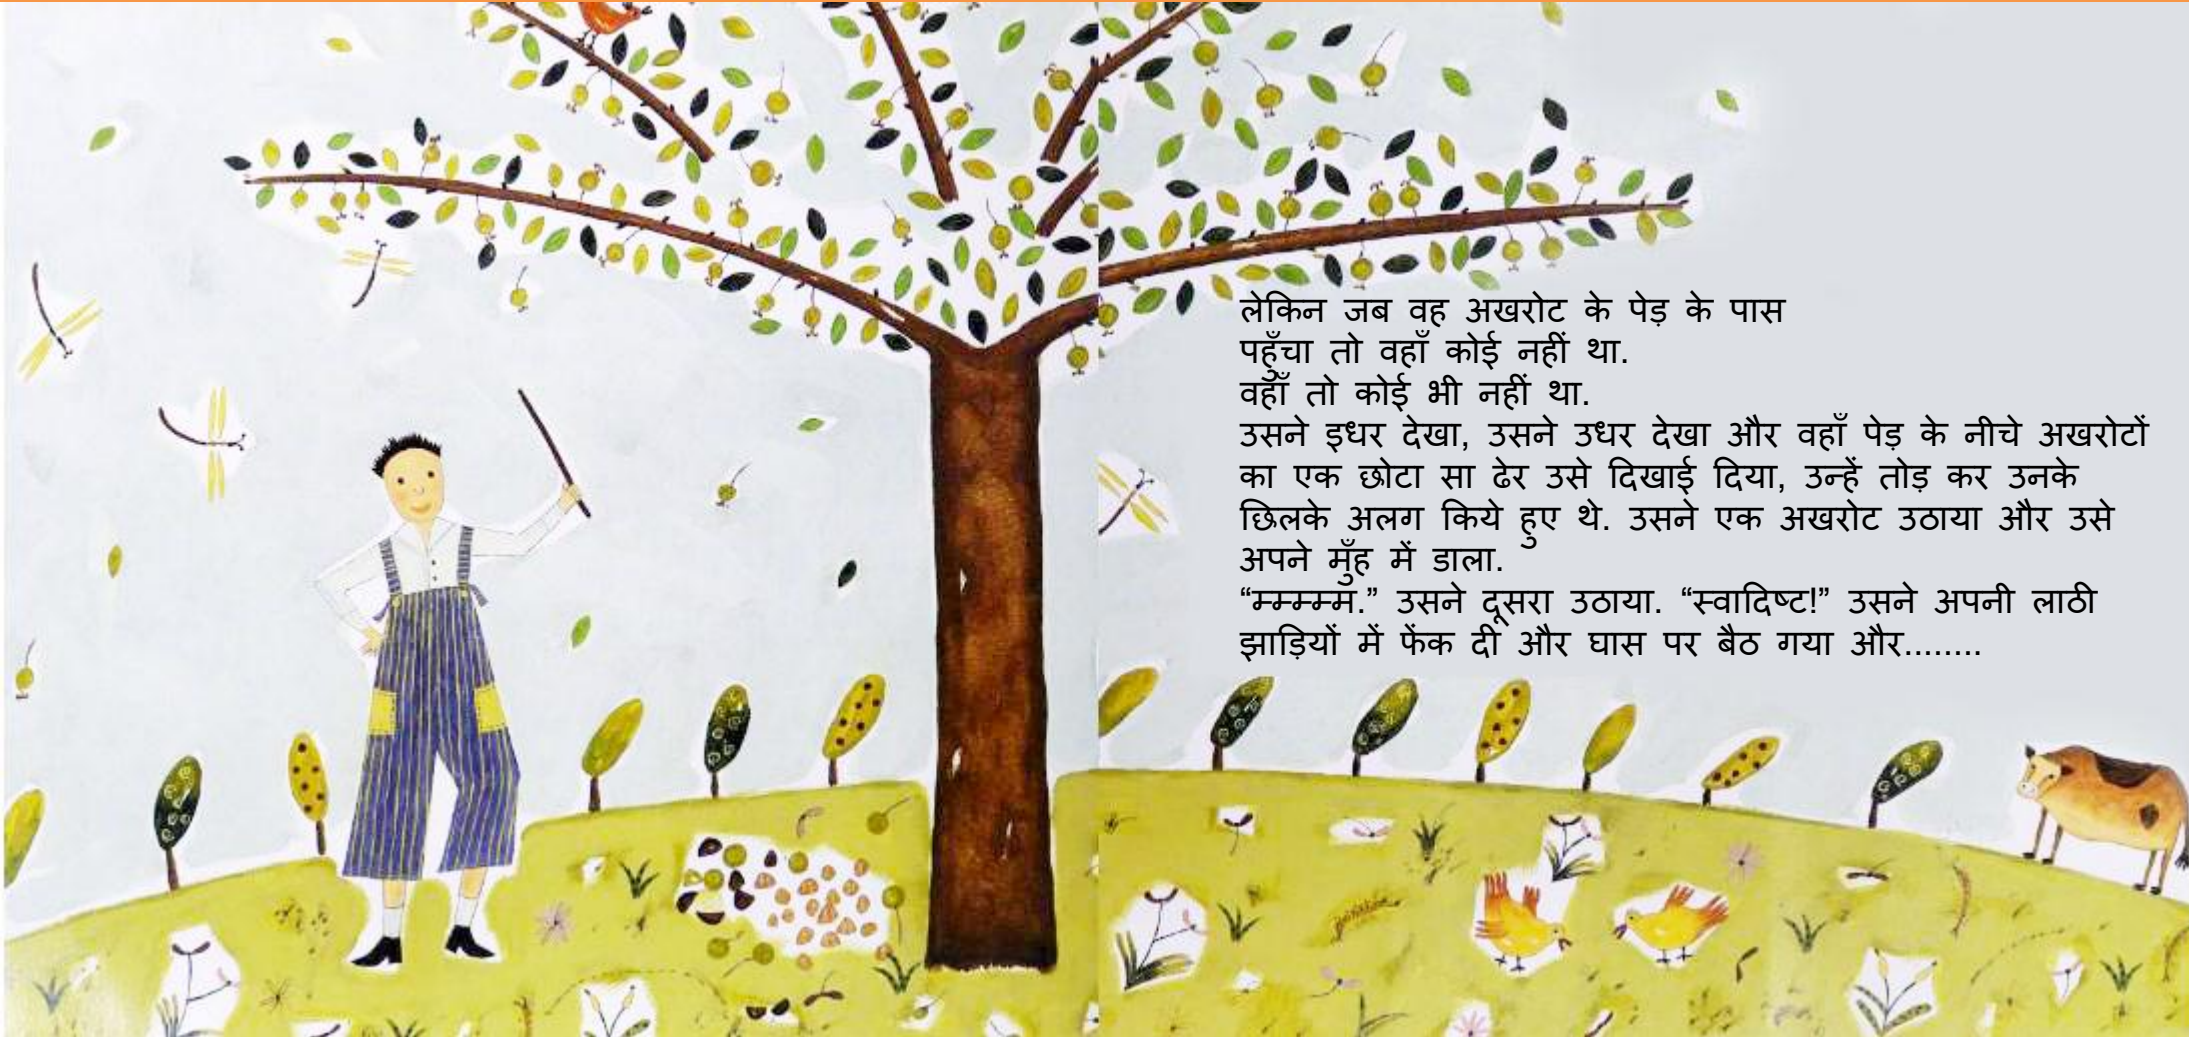 लेकिन जब वह अखरोट के पेड़ के पास
पहुँचा तो वहाँ कोई नहीं था.
वहाँ तो कोई भी नहीं था.
उसने इधर देखा, उसने उधर देखा और वहाँ पेड़ के नीचे अखरोटों
का एक छोटा सा ढेर उसे दिखाई दिया, उन्हें तोड़ कर उनके
छिलके अलग किये हुए थे. उसने एक अखरोट उठाया और उसे
अपने मुँह में डाला.
“म्म्म्म्म.” उसने दूसरा उठाया. “स्वादिष्ट!” उसने अपनी लाठी
झाड़ियों में फेंक दी और घास पर बैठ गया और........